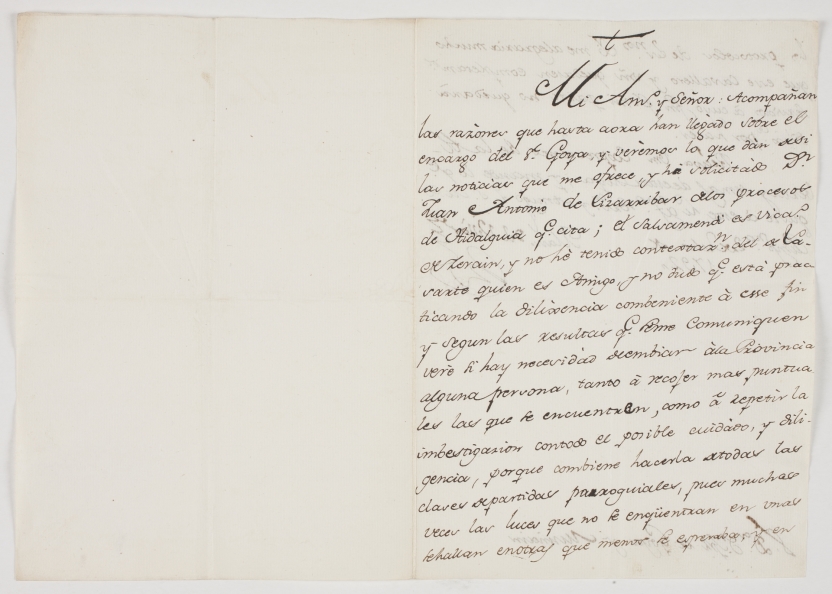 Mi Amº. y Señor: Acompañan
las razònes que hasta aora han llegàdo sobre el
encargo del Sr. Goya, y verèmos lo que dàn de si
las noticias que me ofrece, y há solicitàdo Dn.
Juan Antonio de Lizarribar de los procesos
de Hidalguia qe. cita; el Salsamendi es Vicaº.
de Zerain, y no hè tenido contextaⁿ. del de La-
sarte quien es Amigo, y no dudo qe. està prac
ticando la dilixencia combeniente à esse fin
y segun las resultas qe. seme Comuniquen
verè si hay necesidad de embiar à la Provincia
alguna persona, tanto à recojer mas puntua
les las que se encuentren, como à repetir la
imbestigazion con todo el posible cuidàdo, y dili-
gencia, porque combiene hacerla de todas las
clases de partidas parroquiales, pues muchas
veces las luces que no se enqüentran en unas
se hallan en otras que menos se esperaba, y en